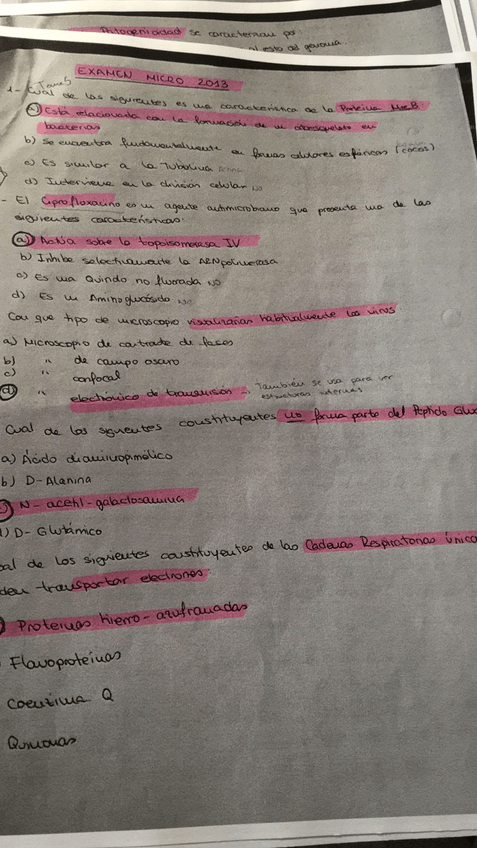 Patogenicidad se caracterizan por
el resto del genoma.
EXAMEN MICRO 2013
1- Cual de las siguientes es una característica de la Proteína MreB
a) Está relacionada con la formación de un citoesqueleto en
bacterias
b) Se encuentra fundamentalmente en formas celulares esféricas (cocos)
c) Es similar a la Tubulina
d) Interviene en la división celular NO
- El Ciprofloxacino es un agente antimicrobiano que presenta una de las
siguientes características:
a) Actúa sobre la topoisomerasa IV
b) Inhibe selectivamente la ARNpolimerasa
c) Es una Quinolo no fluorada NO
d) Es un Aminoglucósido NO
Con que tipo de microscopio visualizarías habitualmente los virus
a) Microscopio de contraste de fases
b) " de campo oscuro
c) " confocal
d) " electrónico de transmisión → También se usa para ver
estructuras internas
Cual de los siguientes constituyentes no forma parte del Peptido Gluc
a) Ácido diaminopimélico
b) D-Alanina
c) N-acetil-galactosamina
d) D-Glutámico
ual de los siguientes constituyentes de las Cadenas Respiratorias únic
den transportar electrones
Proteínas hierro-azufradas
Flavoproteínas
Coenzima Q
Quinonas